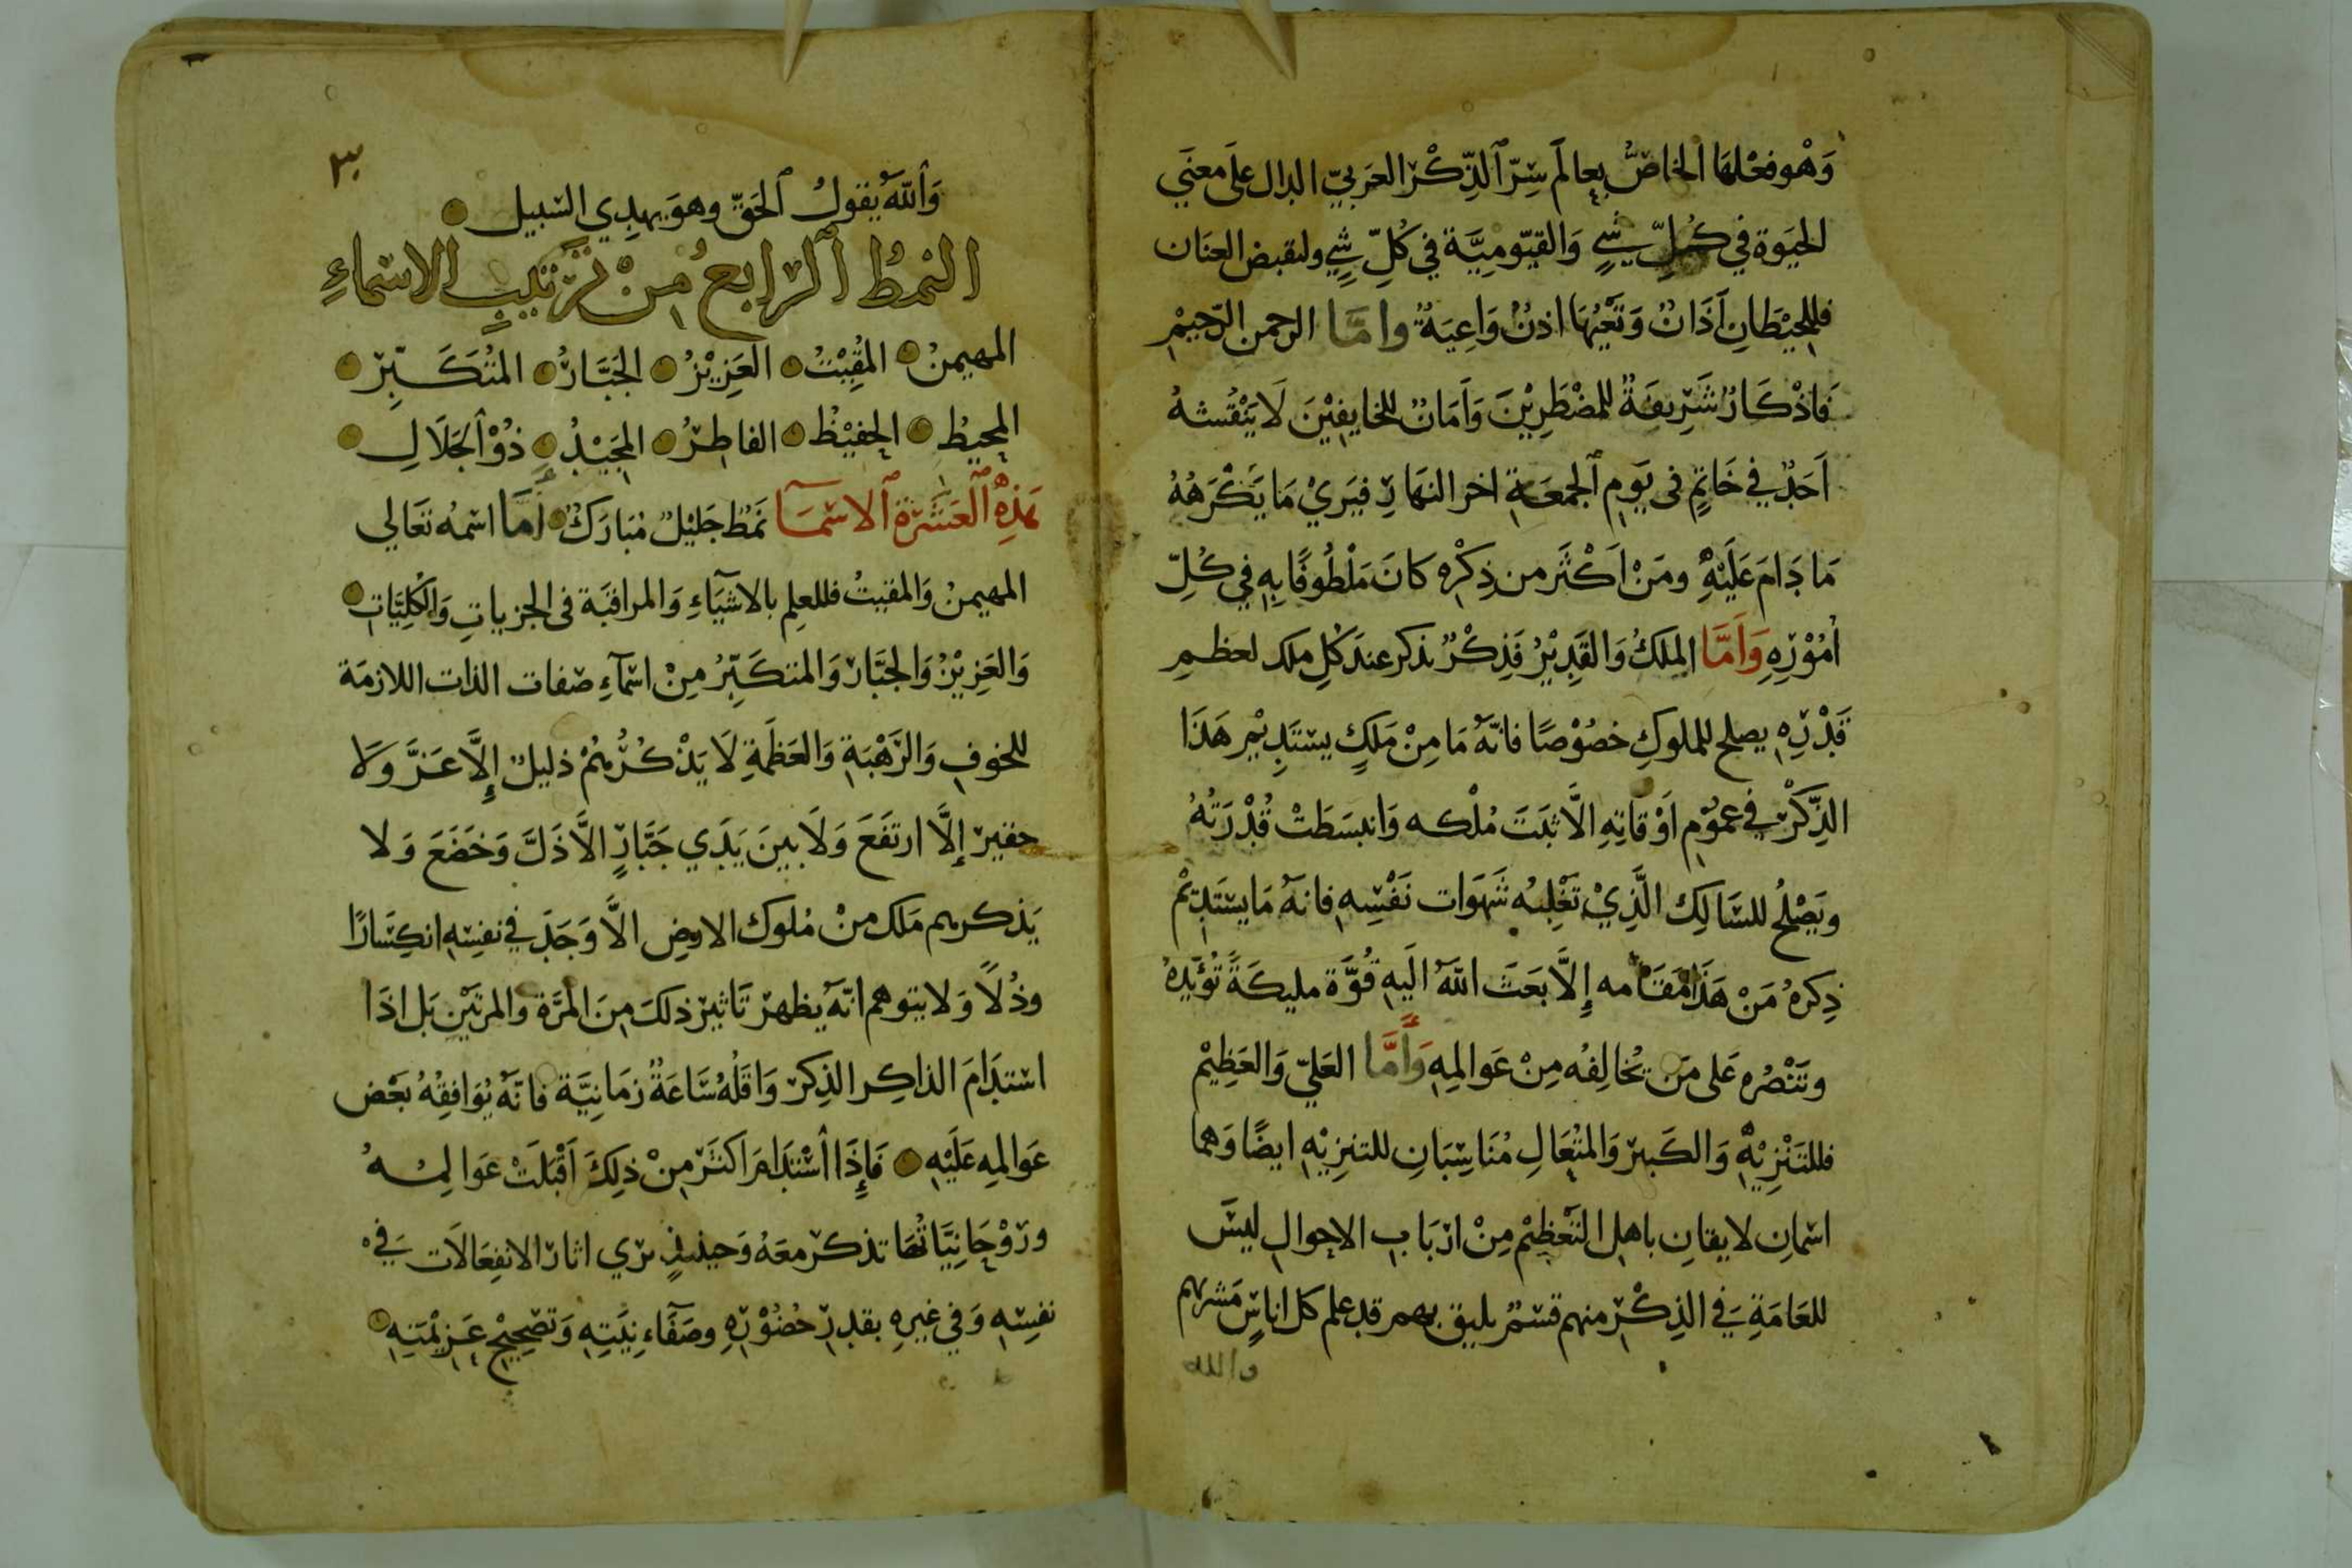 وَهْو فعْلهَا الخاصُّ بعالَم سِرّ ٱلذِّكْر العَربيّ الدال علَى معنَي
الحيَوة في كُلِّ شيٍ وَالقيّوميَّة في كُلِّ شيٍ ولنقبض العنَان
فللحِيْطَانِ آذَانٌ وَتَعْيُهَا اذنٌ وَاعِيَةٌ وامَّا الرحمن الرّحيْم
فَاذْكَارٌ شَرِيفَةٌ للمضْطَرِيْنَ وَاَمَانٌ للخايفِيْنَ لَا يَنْقُشهُ
اَحَدٌ في خَاتمٍ فى يَومِ ٱلجمعَةِ اخر النهَارِ فيَريْ مَا يَكْرَهُهُ
مَا دَامَ عَلَيْهِ ومَنْ اَكْثَر من ذِكْرِه كَانَ مَلْطُوفًا بِهِ في كُلِّ
اُمُوْرِهِ وَاَمَّا المَلكُ وَالقَدِيْرُ فَذِكْرٌ يذكر عندَ كُلِ ملك لعظمِ
قَدْرِهِ يصلح للملوكِ خصُوْصًا فانّهُ مَا مِنْ مَلكٍ يستَدِيْم هَذَا
الذِّكْر في عمُوْمِ اَوْقاتِهِ الَّا ثبَتَ مُلْكه وَانبسَطَتْ قُدْرَتُهُ
ويَصْلحُ للسَّالِك الَّذِيْ تَغْلِبُه شَهوَات نَفْسِهِ فانهُ مَا يستَدِيْمُ
ذِكرهُ مَنْ هَذَا مَقَامه إِلَّا بعَثَ اللّهُ الَيهِ قُوَّة مليكَةً تُؤَيّدهُ
وتَنْصُره عَلى مَن يُخالِفُه مِنْ عَوالمِهِ وَأَمَّا العَليّ وَالعَظِيْم
فللتَنْزِيْهِ وَالكَبير وَالمتُعَالِ مُنَاسِبَانِ للتنزِيْهِ ايضًا وَهما
اسْمانِ لا يقانِ باهلِ التَعْظِيْم مِنْ ارْبَابِ الاحوالِ ليسَ
للعَامَةِ في الذِكْرِ منهم قسْمٌ يليق بهم قد علم كل اناسٍ مَشربهم
والله
٣٠
وَٱللّهُ يقولُ ٱلحَقّ وهوَ يهدِي السّبيل
النمطُ ٱلرابعُ مِنْ تَرتيبِ الاسْماءِ
المهيمنُ المقِيْتُ العَزِيْزُ الجَبَّارُ المتُكَبِّر
المحيطُ الحفيْظُ الفاطرُ المَجيْدُ ذُوْ ٱلجَلَالِ
هَذِهِ ٱلْعَشَرَةُ ٱلاسْمَآ نمَطٌ جَليْلٌ مُبَارَكٌ أمَّا اسْمهُ تعَالي
المهيمنُ وَالمقيتُ فللعلِم بالاشيَآءِ وَالمراقبَة فى الجزيياتِ وَالكُلِيَّاتِ
وَالعَزِيْزُ وَالجَبَّار وَالمتكَبِّرُ مِنْ اسْمَآءِ صفات الذات اللازمَة
للخوفِ وَالرَهْبَةِ وَالعَظمَةِ لَا يَذْكُرُهُمْ ذليلٌ إِلَّا عَزَّ وَلَا
حقير إلَّا ارتفَعَ وَلَا بينَ يَدَي جَبَّارٍ الَّا ذَلَّ وَخضَعَ وَلا
يَذكرهم مَلك منْ مُلوك الارضِ الَّا وَجَدَ في نفسِهِ انكِسَارًا
وذُلاً وَلا يتوهم انّهُ يظهر تَاثير ذلكَ مِنَ المرَّة والمرتَيْنِ بَل اذَا
اسْتدَامَ الذاكِر الذِكر وَاقلُّهُ سَاعَةٌ زمَانيَّة فانّهُ يُوَافِقُهُ بعَض
عَوالمِهِ عَلَيْهِ فَإِذَا اسْتَدَامَ اكثَرَ مِنْ ذلِكَ اَقْبَلَتْ عَوالِمُهُ
ورُوْحَانِيَّاتُهَا تذكر معَهُ وَحينيذٍ يري اثار الانفعَالَات في
نفسِهِ وَفي غيرهِ بقدرِ حُضُوْرِهِ وصَفَآءِ نيَّتِهِ وَتصْحِيْحِ عَزِيْمَتِهِ